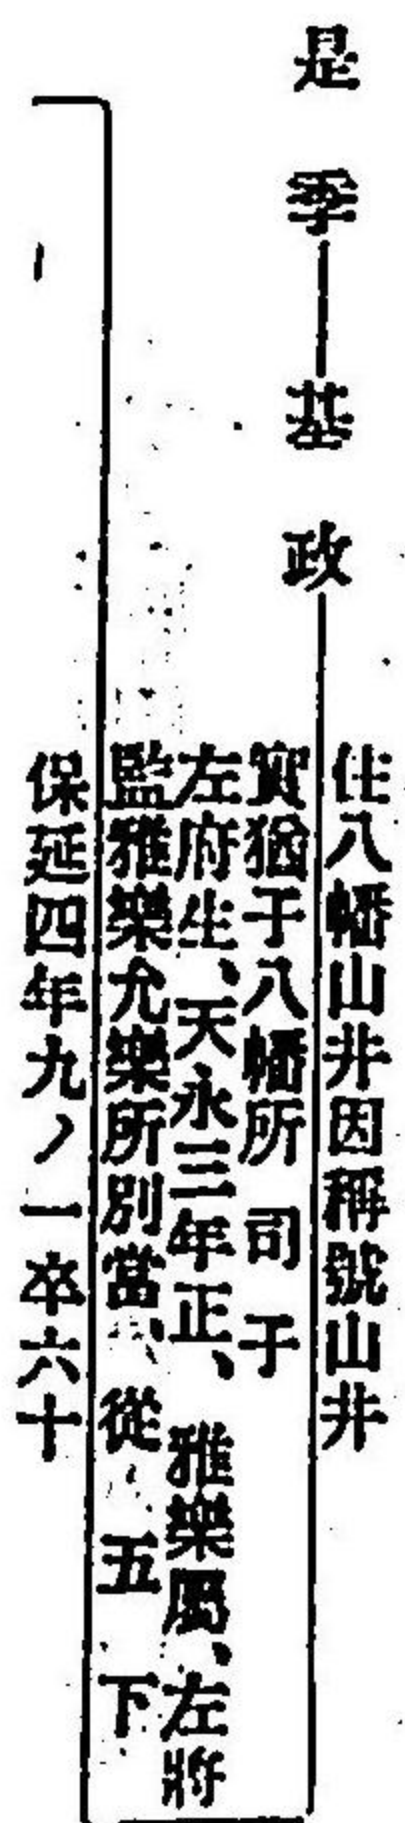 是季―基政―
住八幡山井因稱號山井
實猶于八幡所司于
左府生、天永三年正、雅樂屬、左將
監雅樂允樂所別當、從五下
保延四年九ノ一卒六十